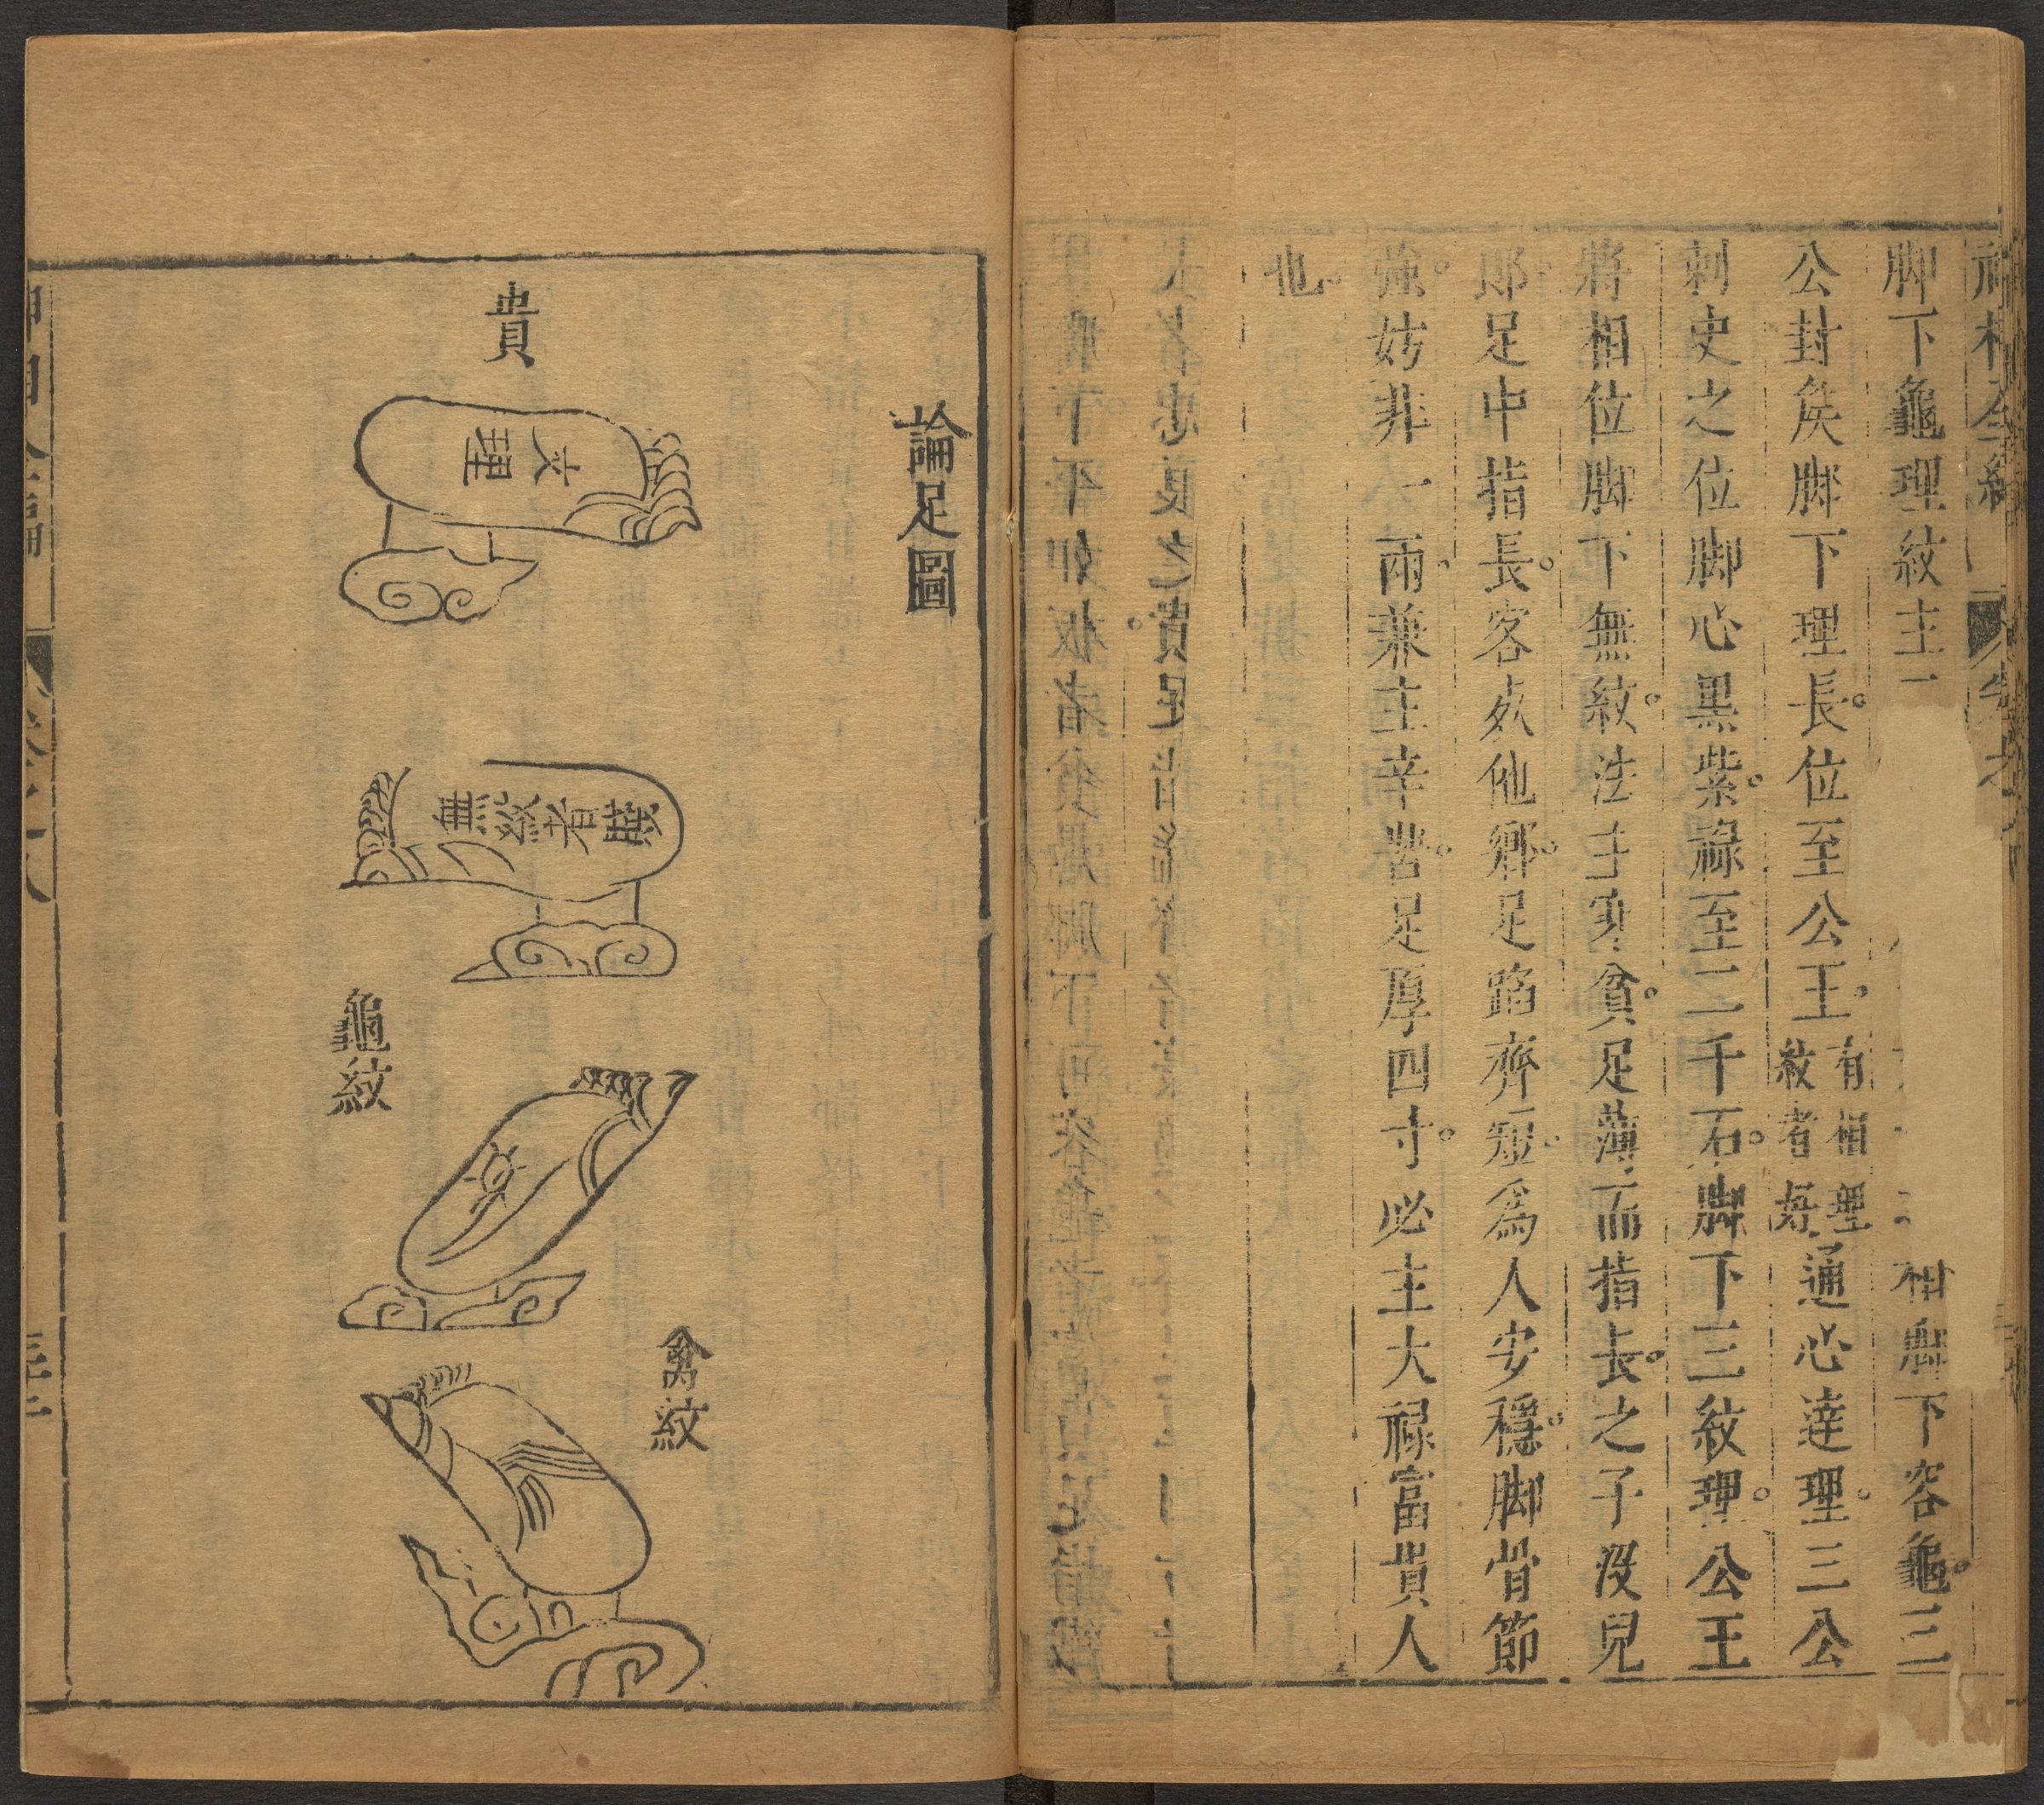 脚下龜理紋主
相脚下容龜。三
公封矦脚下理長。位至公王。有相理紋者好通心達理。三公
刺史之位脚心黑紫。祿至二千石。脚下三紋理。公王
將相位脚下無紋。法主寒貧。足薄而指長。之子沒兒
郎。足中指長。客死他鄉。足蹈齊短。爲人安穩。脚骨節
強。妨非一兩。兼主辛苦。足厚四寸。必主大祿富貴人
也。
論足圖
貴
文理
無紋者賤
龜紋
禽紋